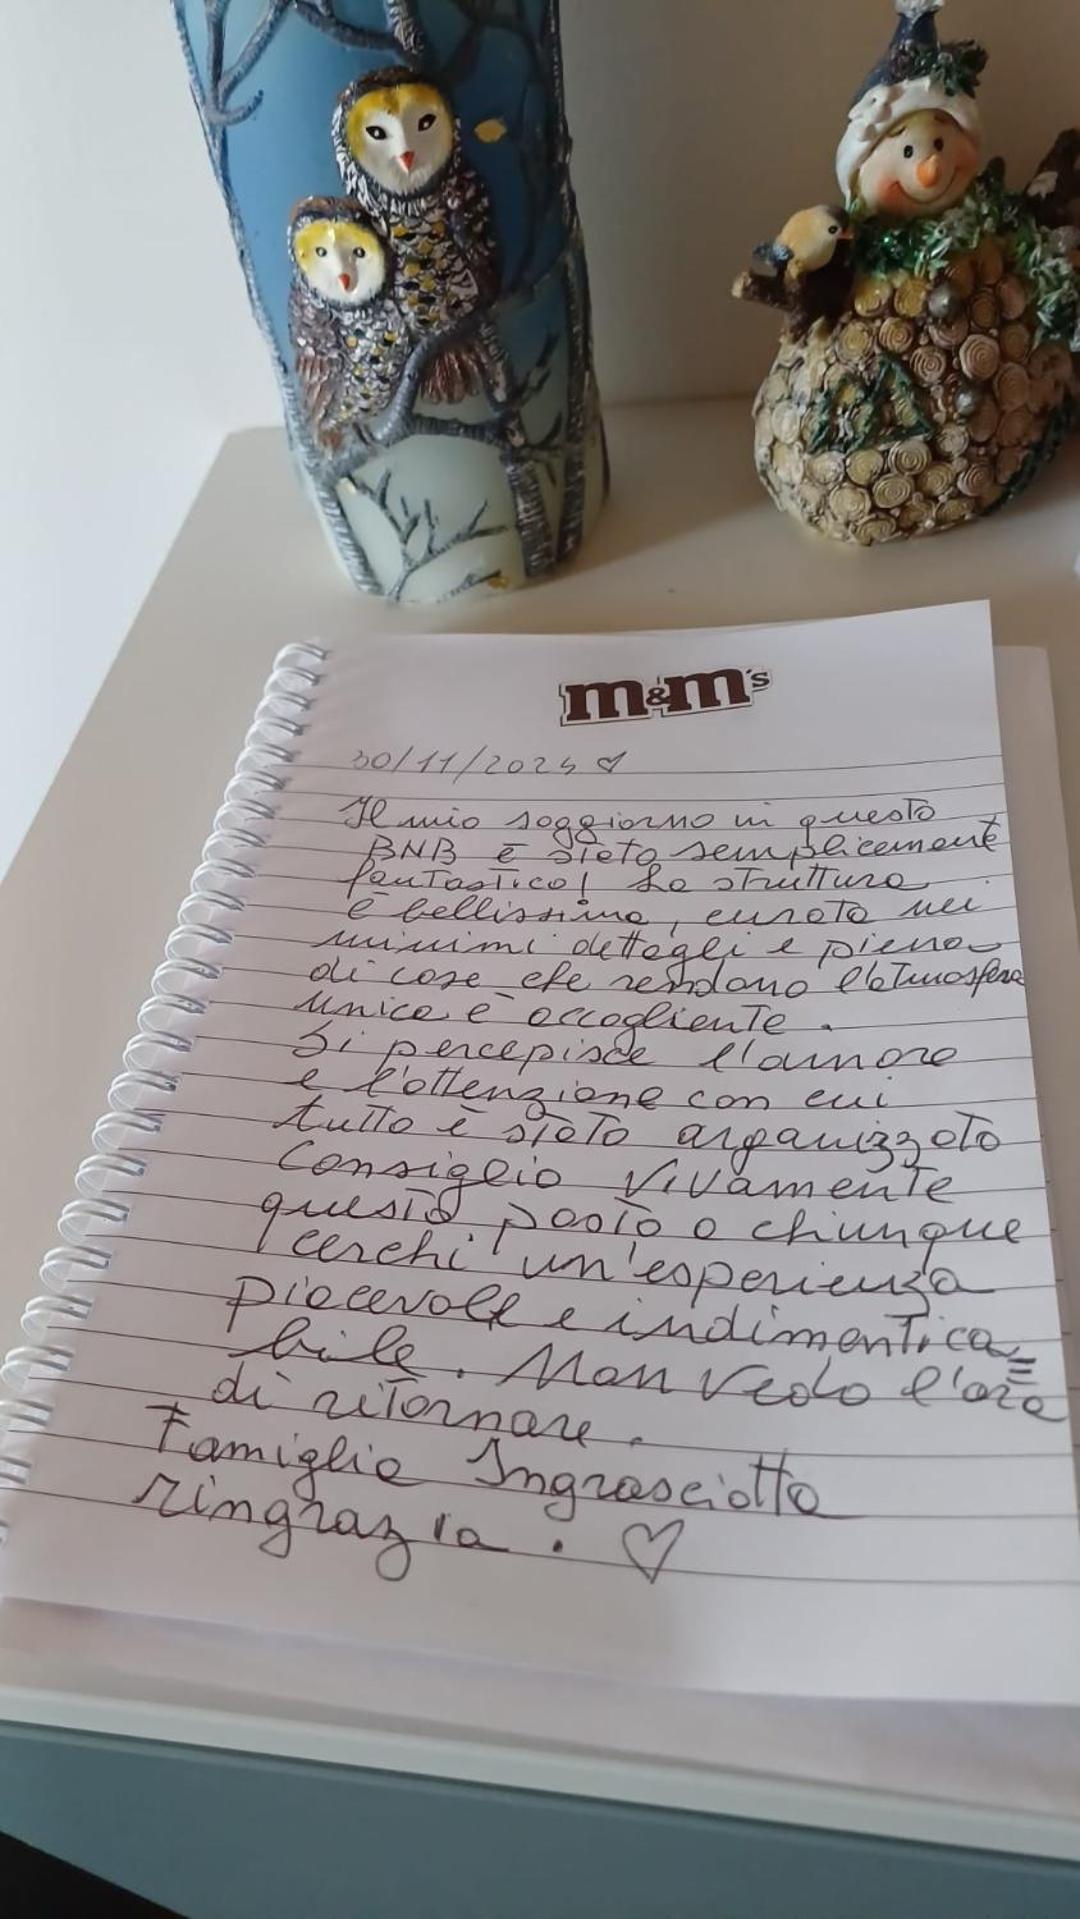 m&m's
30/11/2024 ♡
Il mio soggiorno in questo
BNB è stato semplicemente
fantastico! La struttura
è bellissima, curata nei
minimi dettagli e piena
di cose che rendono l'atmosfera
unica e accogliente.
Si percepisce l'amore
e l'attenzione con cui
tutto è stato organizzato
Consiglio vivamente
questo posto a chiunque
cerchi un'esperienza
piacevole e indimentica=
bile. Non vedo l'ora
di ritornare.
Famiglia Ingrasciotta
ringrazia. ♡